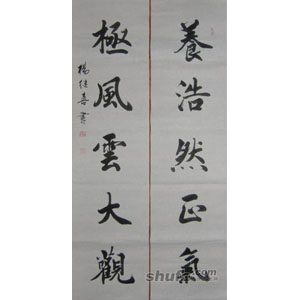 養浩然正氣
極風雲大觀
楊紹喜書